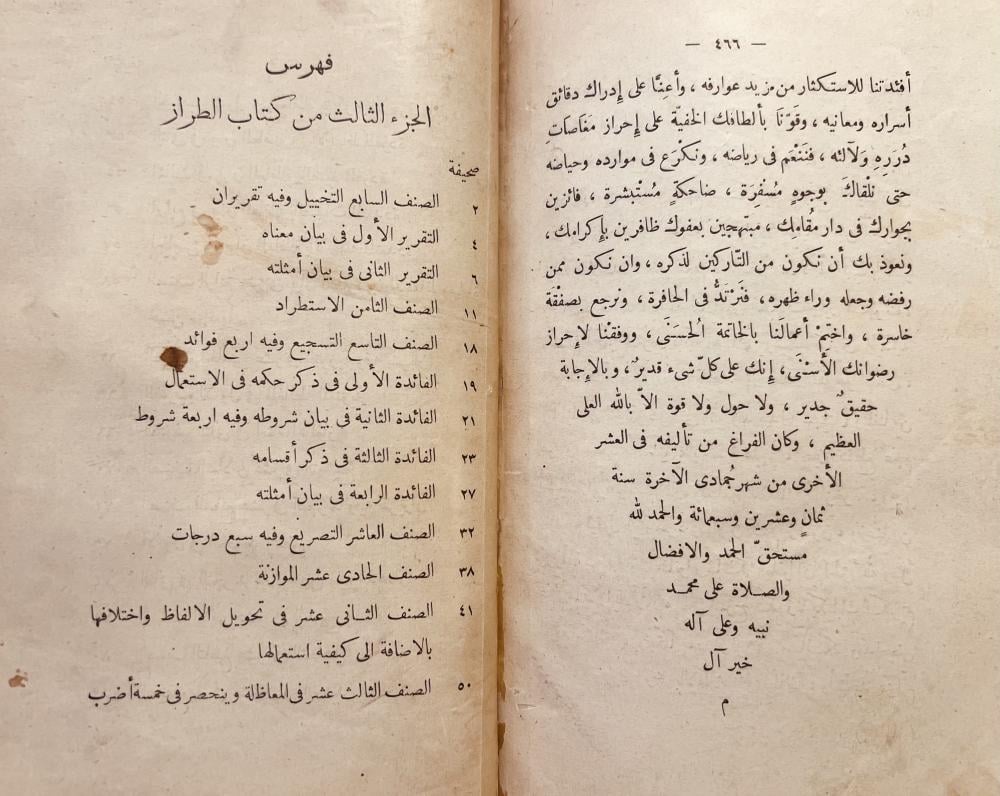 — ٤٦٦ —
أفئدتنا للاستكثار من مزيد عوارفه ، وأعِنَّا على إِدراك دقائق
أسراره ومعانيه ، وقَوّنَا بألطافك الخفيَّة على إِحراز مَغَاصَاتِ
دُرَرِهِ وَلآلئه ، فنَنْعَم فى رياضه ، ونكْرَع فى موارده وحياضه
حتى نلْقاكَ بوجوهٍ مُسْفِرَة ، ضاحكةٍ مُسْتبْشرة ، فائزين
بجوارك فى دار مُقَامِك ، مبتهجِين بعفوك ظافرين بإِكرامك ،
ونعوذ بك أن نكون من التّاركين لذكره ، وان نكون ممن
رفضه وجعله وراء ظهره ، فَنَرْتَدُّ فى الحافرة ، ونرجع بصفْقَة
خاسرة ، واختِمْ أعمالَنا بالخاتمة الحُسَنَى ، ووفقْنا لإِحراز
رضوانك الأَسْنَى ، إِنك على كلّ شىء قديرٌ ، وبالإِجابة
حقيقٌ جدير ، ولا حول ولا قوة الاّ بالله العلى
العظيم ، وكان الفراغ من تأليفه فى العشر
الأخرى من شهر جُمادى الآخرة سنة
ثمانٍ وعشرين وسبعمائة والحمد لله
مستحقّ الحمد والافضال
والصلاة على محمد
نبيه وعلى آله
خير آل
م
فهرس
الجزء الثالث من كتاب الطراز
صحيفة
٢ الصنف السابع التخييل وفيه تقريران
٤ التقرير الأول فى بيان معناه
٦ التقرير الثانى فى بيان أمثلته
١١ الصنف الثامن الاستطراد
١٨ الصنف التاسع التسجيع وفيه اربع فوائد
١٩ الفائدة الأولى فى ذكر حكمه فى الاستعمال
٢١ الفائدة الثانية فى بيان شروطه وفيه اربعة شروط
٢٣ الفائدة الثالثة فى ذكر أقسامه
٢٧ الفائدة الرابعة فى بيان أمثلته
٣٢ الصنف العاشر التصريع وفيه سبع درجات
٣٨ الصنف الحادى عشر الموازنة
٤١ الصنف الثانى عشر فى تحويل الالفاظ واختلافها
بالاضافة الى كيفية استعمالها
٥٠ الصنف الثالث عشر فى المعاظلة وينحصر فى خمسة أضرب